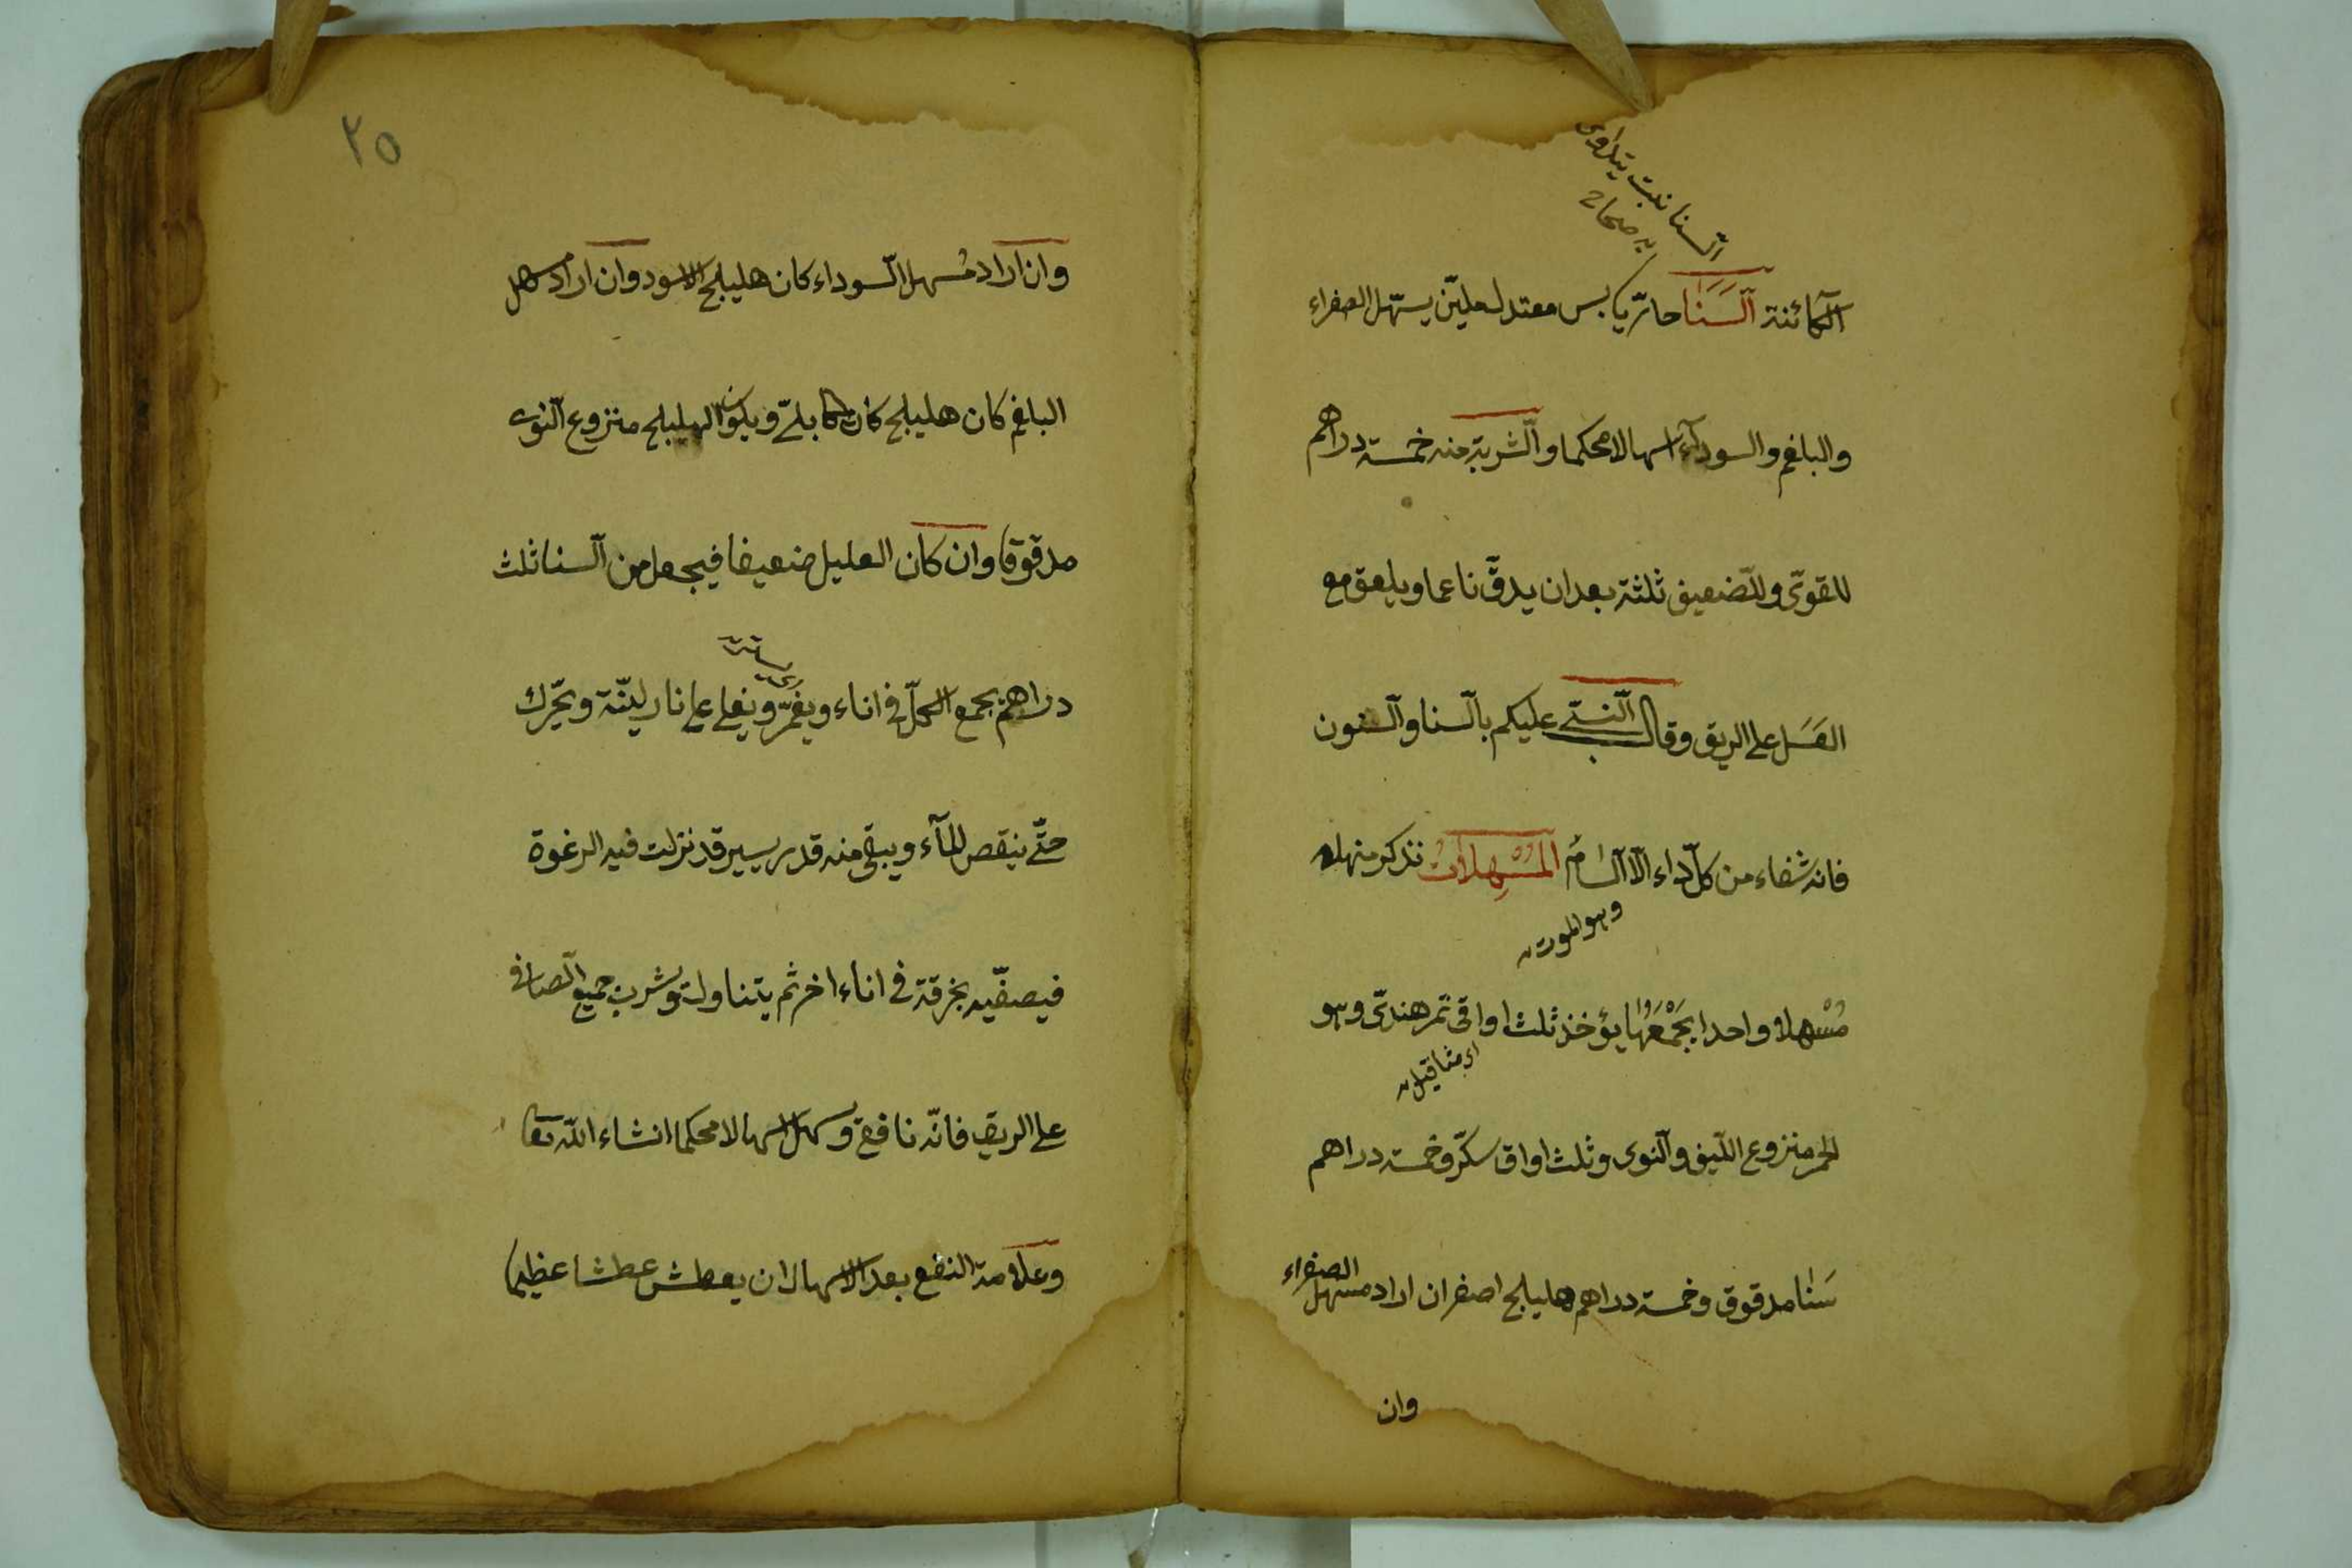 السنا نبت يتداوى
به صحاح
الكائنة السَّنَا حارّ يابس معتدل مليّن يسهّل الصفراء
والبلغم والسودآء اسهالا محكما والشربة منه خمسة دراهم
للقوىّ وللضعيف ثلثة بعد ان يدقّ ناعما ويلعق مع
العَسَل على الريق وقال النبىّ عليكم بالسنا والسنون
فانه شفاء من كلّ داء الّا السّامُ المُسْهِلاتُ نذكر منها
وهو الموت
مُسْهلا واحدا يَجْمَعُها يؤخذ ثلث اواقى تمر هندىّ وهو
اى مثاقيل
الحمر منزوع الليف والنوى وثلث اواق سكّر وخمسة دراهم
سَنا مدقوق وخمسة دراهم هليلج اصفر ان اراد مسهل الصفراء
وان
٢٥
وان اراد مُسهل السوداء كان هليلج الاسود وان اراد مسهل
البلغم كان هليلج كابلىّ ويكون الهليلج منزوع النوى
مدقوقا وان كان العليل ضعيفا فيجعل من السنا ثلث
دراهم يجمع الكلّ فى اناء ويغمرّ ويغلى على نار ليّنة ويحّرك
حتّى ينقص المآء ويبقى منه قدر يسير قد نزلت فيه الرغوة
فيصفّيه بخرقة فى اناء اخر ثم يتناوله ويشرب جميع الصافى
على الريق فانّه نافع ويسهل اسهالا محكما انشاء اللّه تعا
وعلامة النفع بعد الاسهال ان يعطش عطشا عظيما